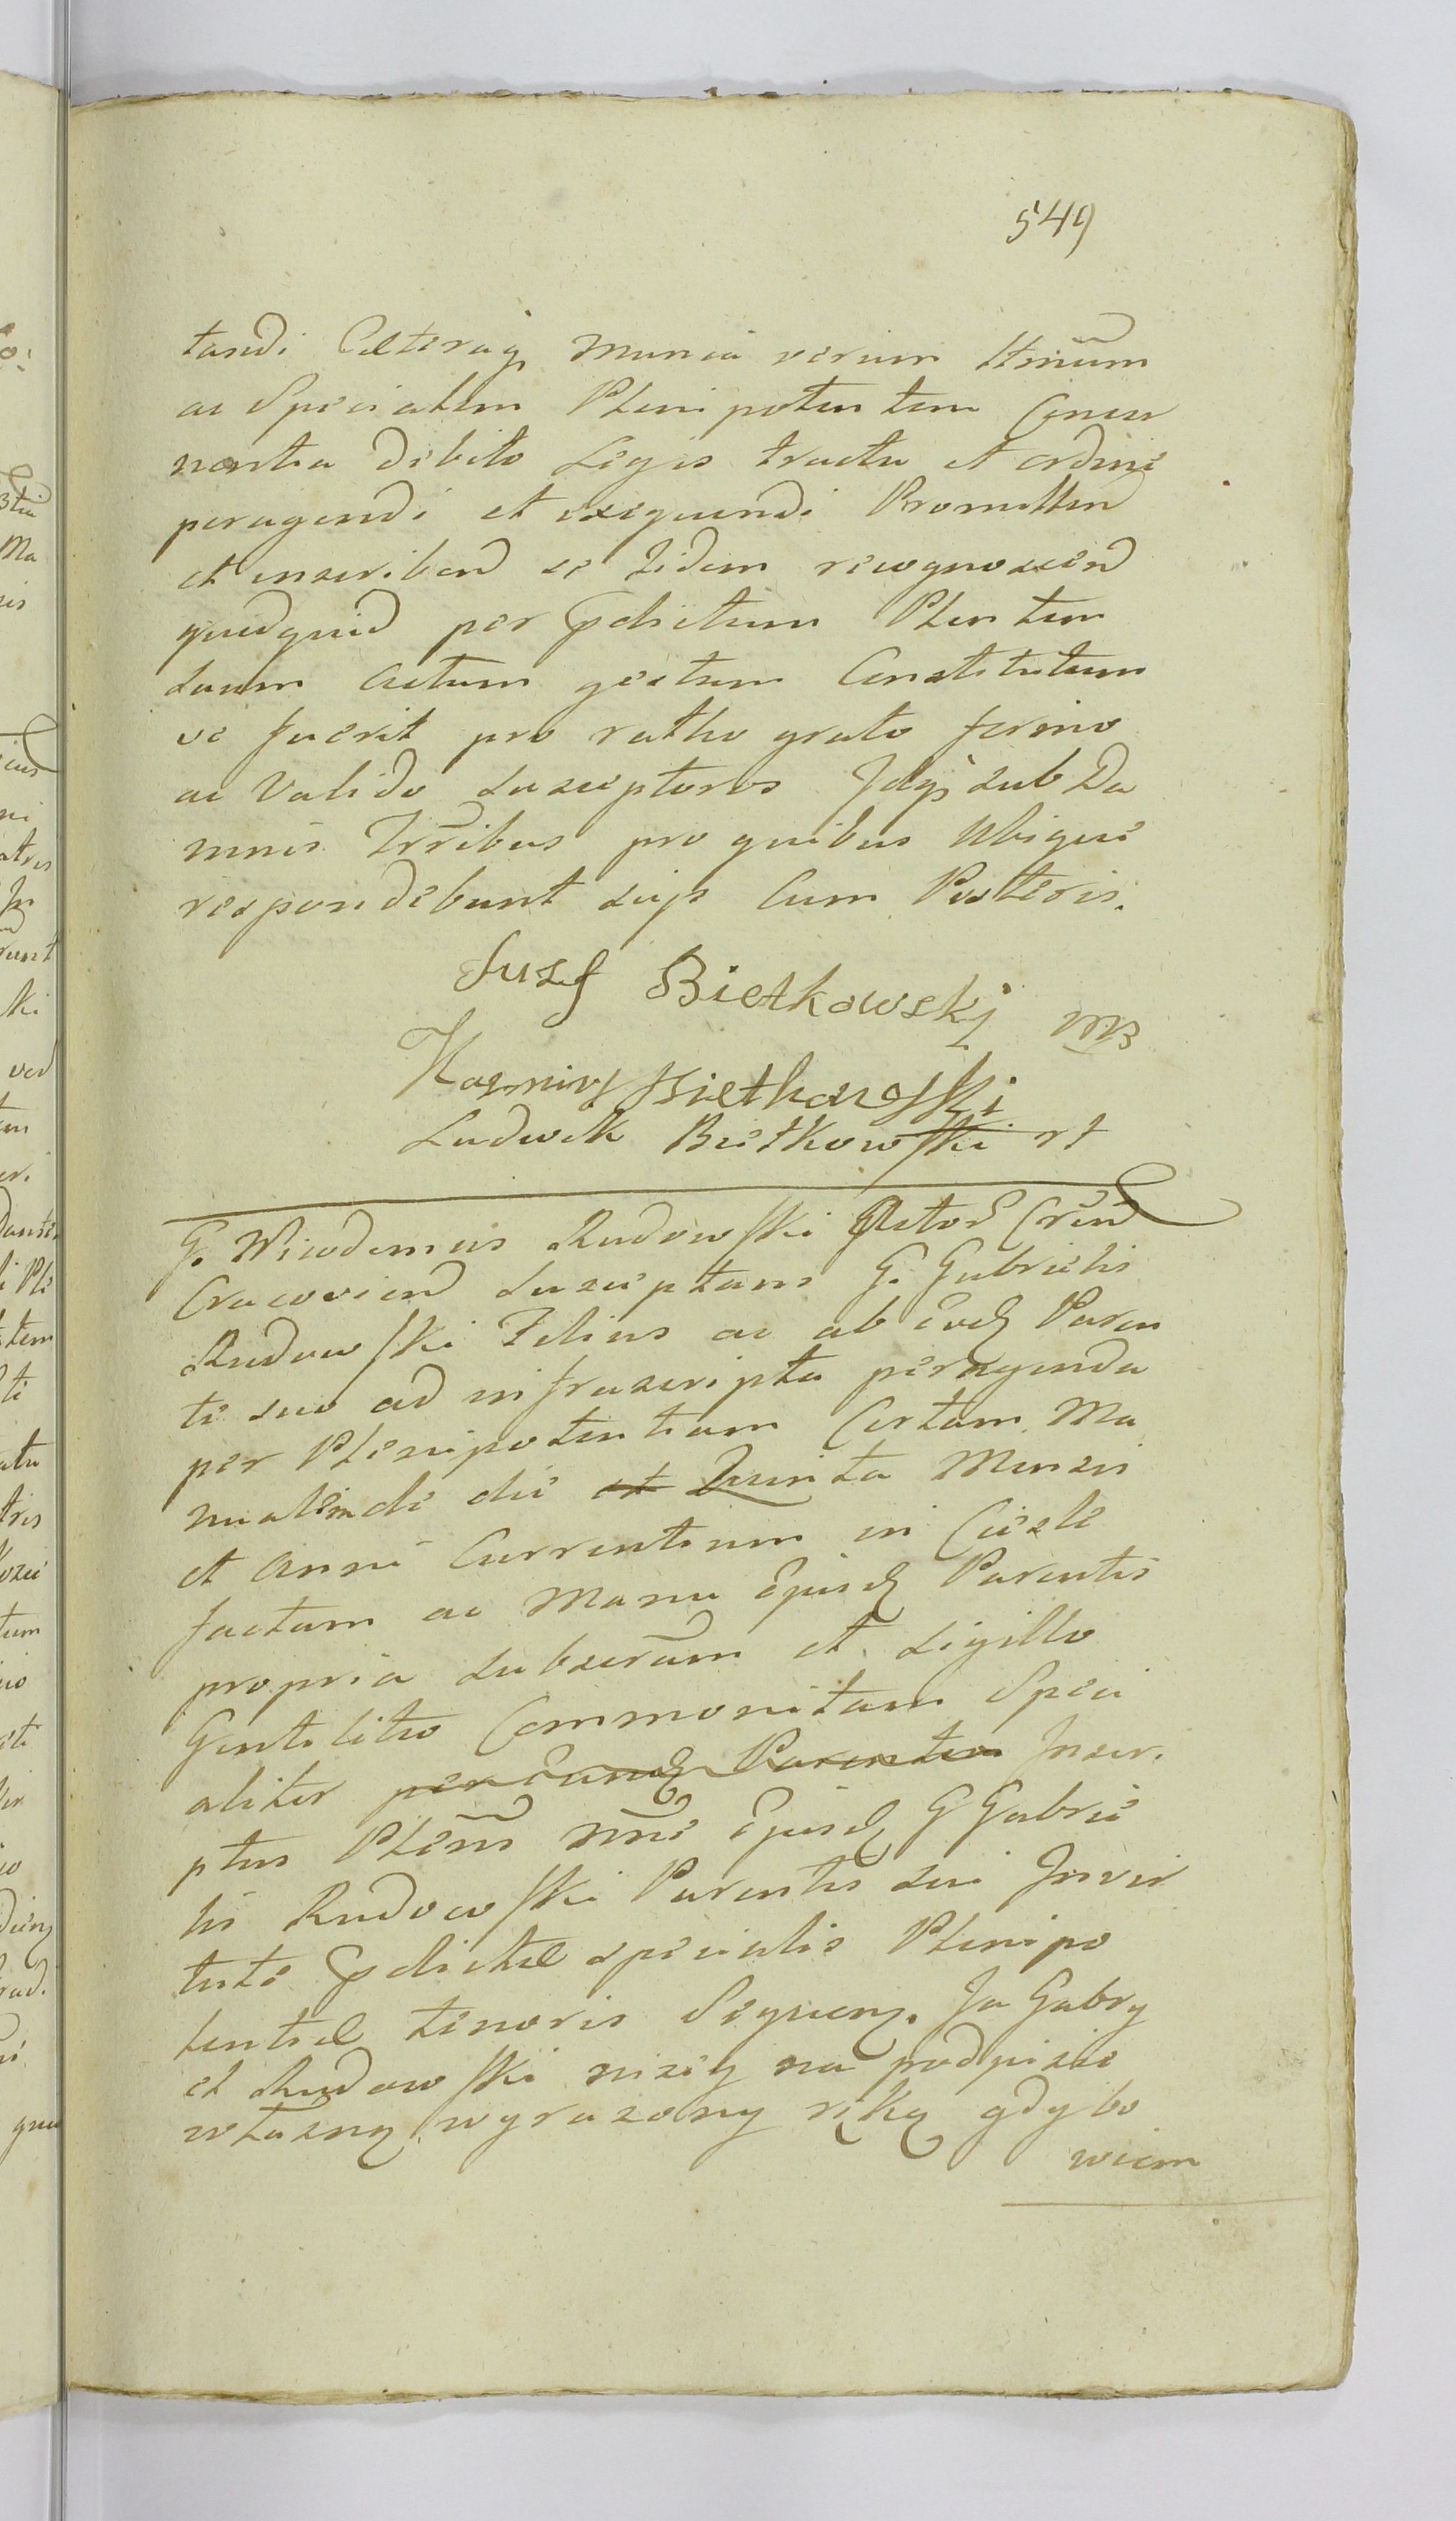 549
tandi Caeteraq munia verum ltmum
ac Specialem Plenipotentem Concer
nentia debito Legis tractu et ordine
peragendi et exequendi Promitten
et inscribend se Iidem recognoscend
quidquid per pdictum Plentem
suum actum gestum Constitutum
ve fuerit pro ratho grato firmo
ac Valido suscepturos Idq sub Da
mnis Trribus pro quibus Ubique
respondebunt seips Cum Posteris.
Juzef Bietkowskj mp
Kazmirz Bietkowski
Ludwik Bietkowski rt
G. Nicodemus Rudowski Actor Cren
Cracovien Susceptans G. Gabrielis
Rudowski Filius ac ab eod Paren
te suo ad infrascripta peragenda
per Plenipotentiam Certam Ma
nualem de die et Quinta Mensis
et anni Currentium in Ciesle
factam ac Manu Ejusd Parentis
propria subscram et sigillo
Gentilitio Communitam Speci
aliter per eund Parentem Inscri
ptus Plens nne Ejusd G Gabrie
lis Rudowski Parentis sui Invir
tute pdictae specialis Plenipo
tentiae tenoris Sequen. Ja Gabry
el Rudowski nizey na podpisie
własną wyrazony ręką gdybo
wiem